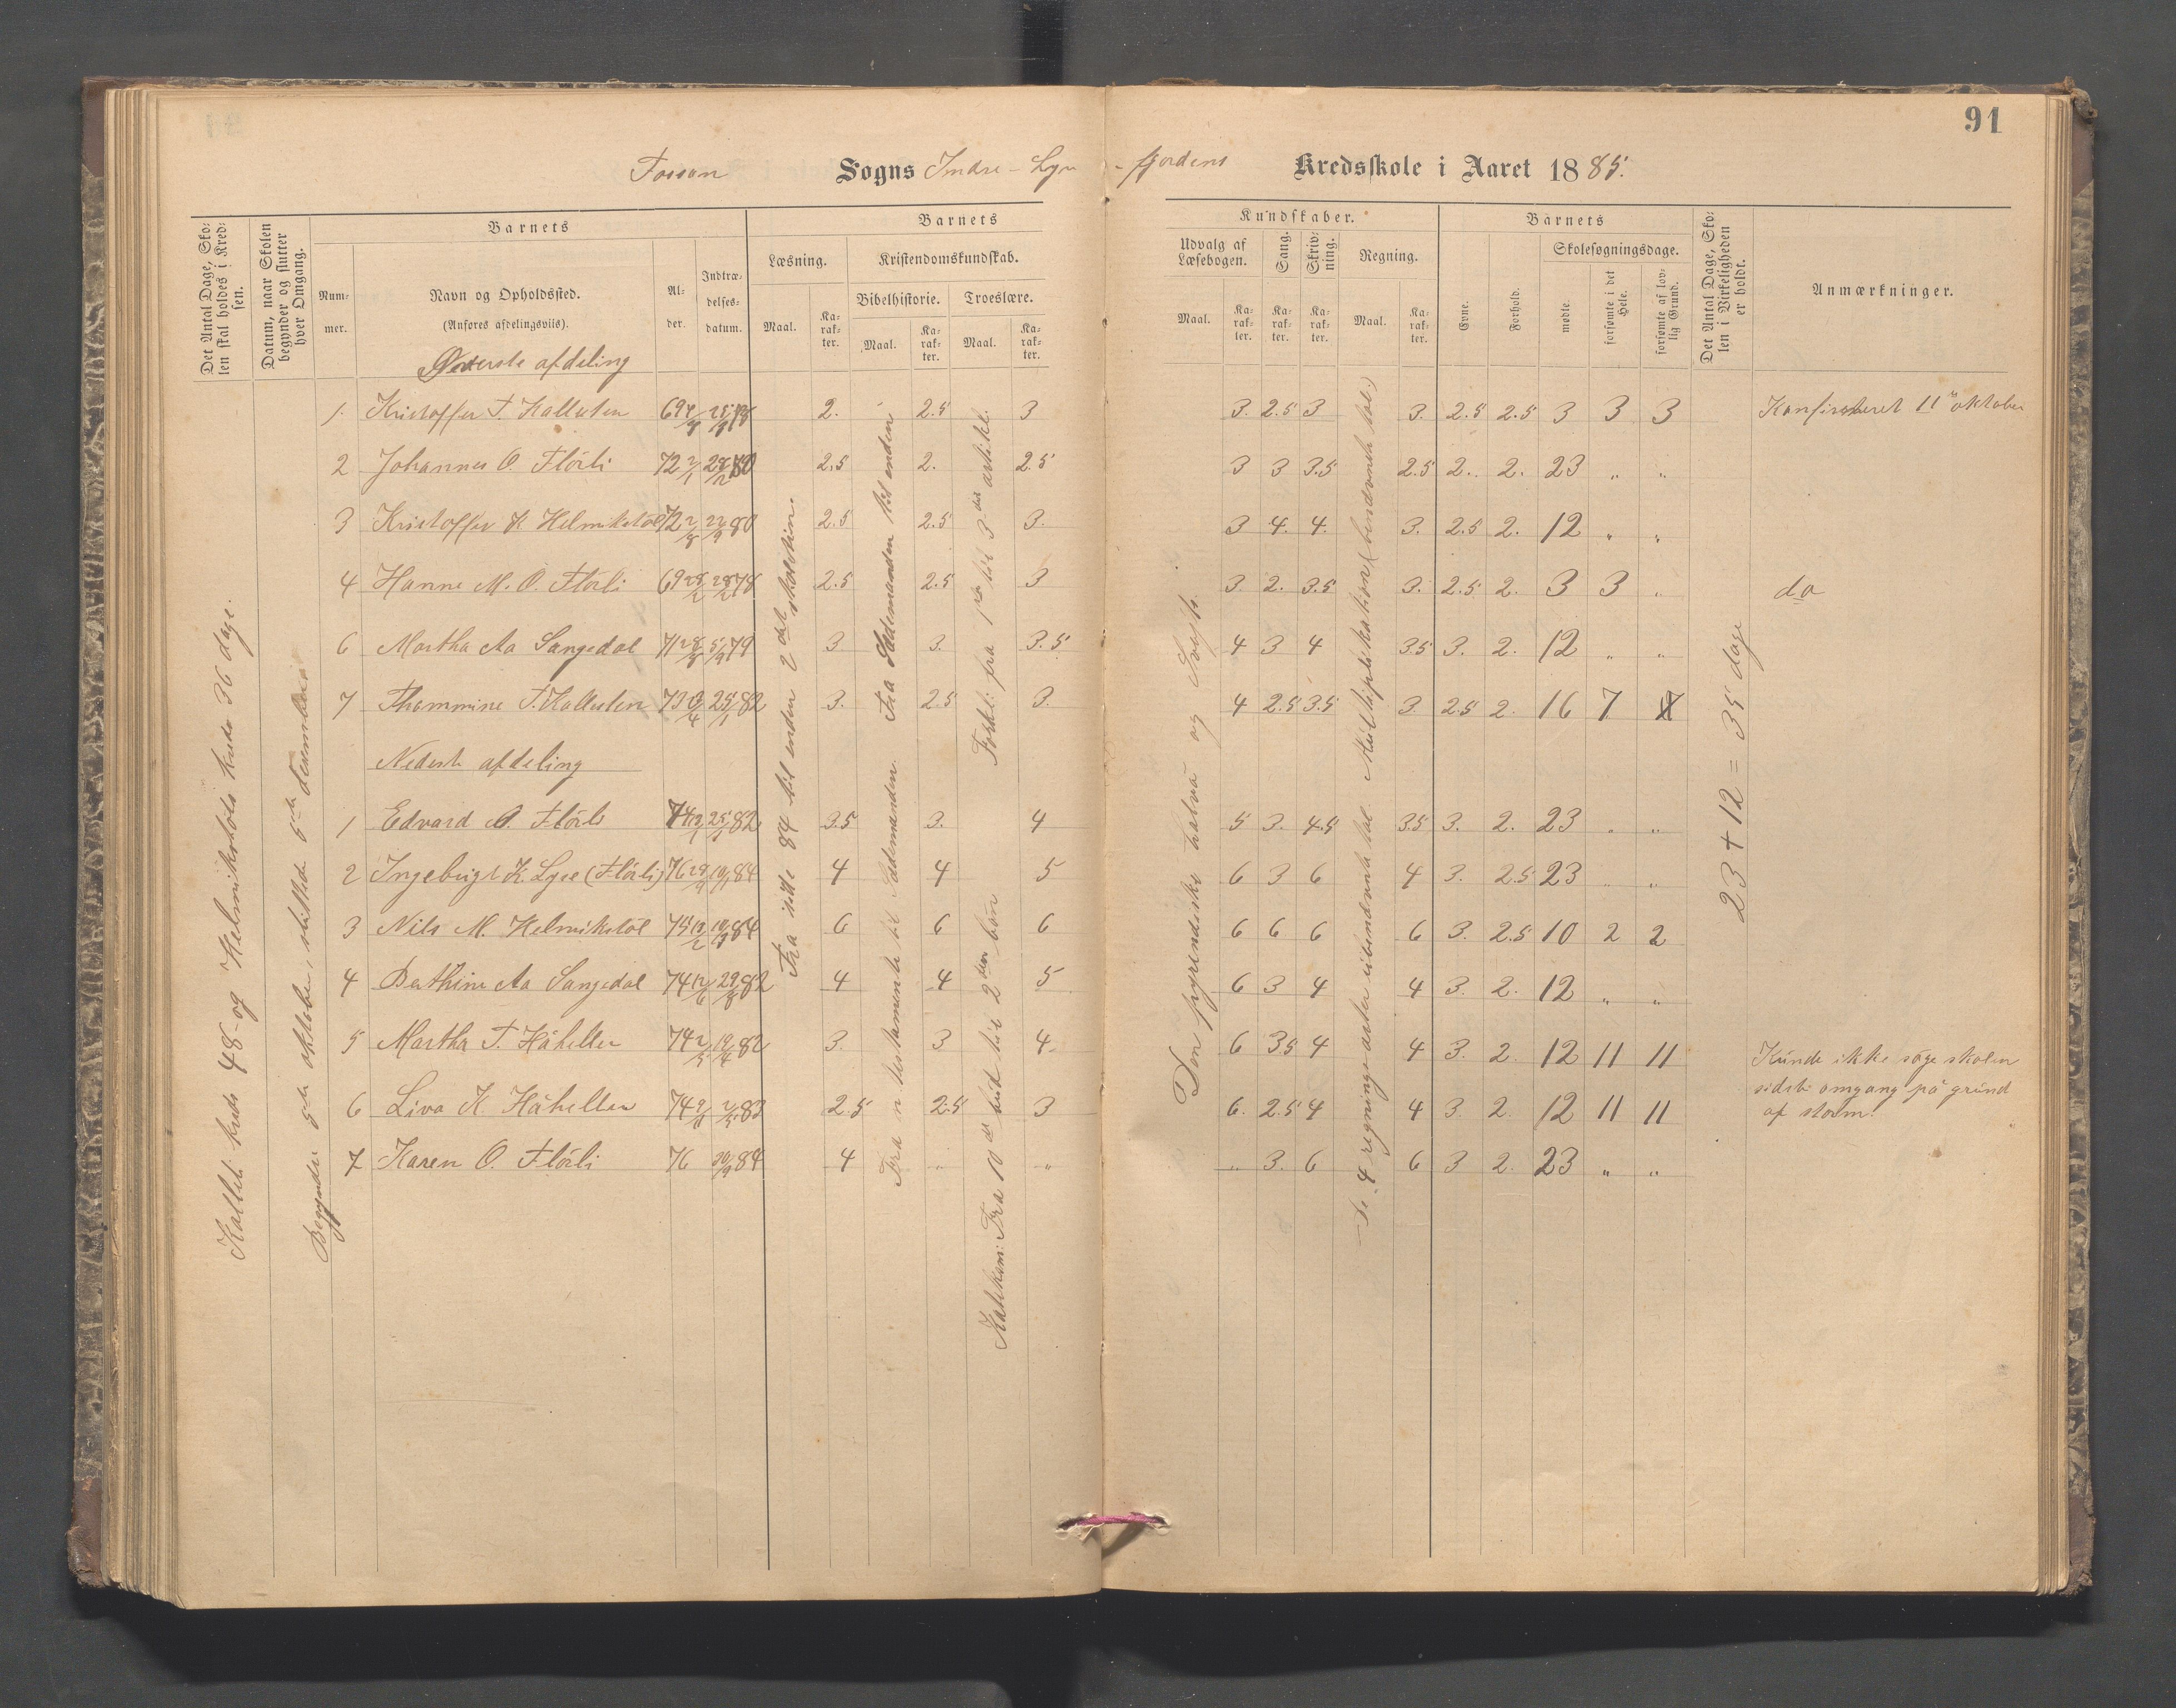 91
Fossan Sogns Indre-Lyse-fjordens Kredsskole i Aaret 1885.
Det Antal Dage, Skolen skal holdes i Kredsen.
Datum, naar Skolen begynder og slutter hver Omgang.
Barnets
Nummer.
Navn og Opholdssted.
(Anføres afdelingsviis).
Alder.
Indtrædelsesdatum.
Barnets
Læsning.
Kristendomskundskab.
Bibelhistorie.
Troeslære.
Maal.
Karakter.
Maal.
Karakter.
Maal.
Karakter.
Kundskaber.
Udvalg af Læsebogen.
Sang.
Skrivning.
Regning.
Maal.
Karakter.
Karakter.
Karakter.
Maal.
Karakter.
Barnets
Evne.
Forhold.
Skolesøgningsdage.
mødte.
forsømte i det Hele.
forsømte af lovlig Grund.
Det Antal Dage, Skolen i Virkeligheden er holdt.
Anmærkninger.
Øverste afdeling
1. Kristoffer T. Kallesten 69 78 2. 2.5 3 3. 2.5 3 3. 2.5 2.5 3 3 3 Konfirmeret 11 oktober
2 Johannes O. Flörli 72 2/1 80 2.5 2. 2.5 3 3 3.5 2.5 2. 2. 23 " "
3 Kristoffer K Helmikstöl 72 2/8 22/9 80 2.5 2.5 3. 3 4. 4. 3. 2.5 2. 12 " "
4 Hanne M. O. Flörli 69 28/2 28/2 78 2.5 2.5 3 3. 2. 3.5 3. 2.5 2. 3 3 " do
6 Martha Aa Sangedal 71 28/8 5/9 79 3 3. 3.5 4 3 4 3.5 3. 2. 12 " "
7 Thommine T. Kallesten 73 25/1 82 3. 2.5 3. 4 2.5 3.5 3 2.5 2. 16 7 7
Nederste afdeling
1 Edvard O. Flörli 74 12/1 82 3.5 3. 4 5 3. 4.5 3.5 3. 2. 23 " "
2 Ingebrigt K. Lyse (Flörli) 76 29/9 84 4 4 5 6 3 6 4 3. 2.5 23 " "
3 Nils M. Helmikstöl 75 84 6 6 6 6 6 6 6 3. 2.5 10 2 2
4 Berthine Aa Sangedal 74 12/6 29/8 82 4 4 5 6 3 4 4 3. 2. 12 " "
5 Martha T. Håheller 74 2/5 19/4 82 3. 3 4. 6 3.5 4 4 3. 2. 12 11 11 Kunde ikke söge skolen
6 Liva K Håheller 74 2/5 83 2.5 2.5 3 6. 2.5 4 4 3. 2. 12 11 11 sidste omgang på grund
af storm.
7 Karen O. Flörli 76 84 4 " " " 3. 6 6 3 2. 23 " "
Kalleste kreds 48 og Helmikstöls kreds 36 dage.
Begyndte 5te oktober, sluttede 5te december
Fra side 84 til enden 2det skoletrin.
Fra n testamente til Sædemanden. Fra Sædemanden til enden
Katekism: Fra 10de bud til 2den bön Forkl: fra 1ste til 3die artikel.
Den pyrenæiske halvö og
De 4 regningsarter i ubenævnte tal. Multiplikation (benævnte tal.)
23 + 12 = 35 dage